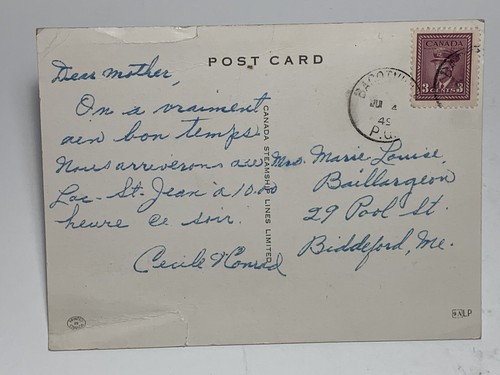 POST CARD
CANADA
3 CENTS 3
BAGOTVILLE
JUL 4
49
P.Q.
Dear Mother,
On a vraiment
aen bon temps.
Nous arriverons au
Lac-St-Jean a 10.00
heure ce soir.
Cecile & Conrad
CANADA STEAMSHIP LINES LIMITED
Mrs. Marie Louise
Baillargeon
29 Pool St.
Biddeford, Me.
LP